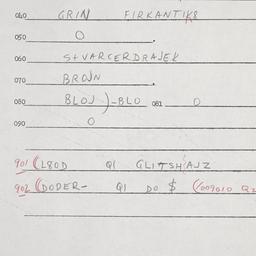 040 GRIN FIRKANTIK8
050 O
060 S+VARCERDRAJEK
070 BROJN
080 BLOJ)-BLO 081 O
090 O
901 (L80D QI GLITSHAJZ
902 (DODER- QI DO $